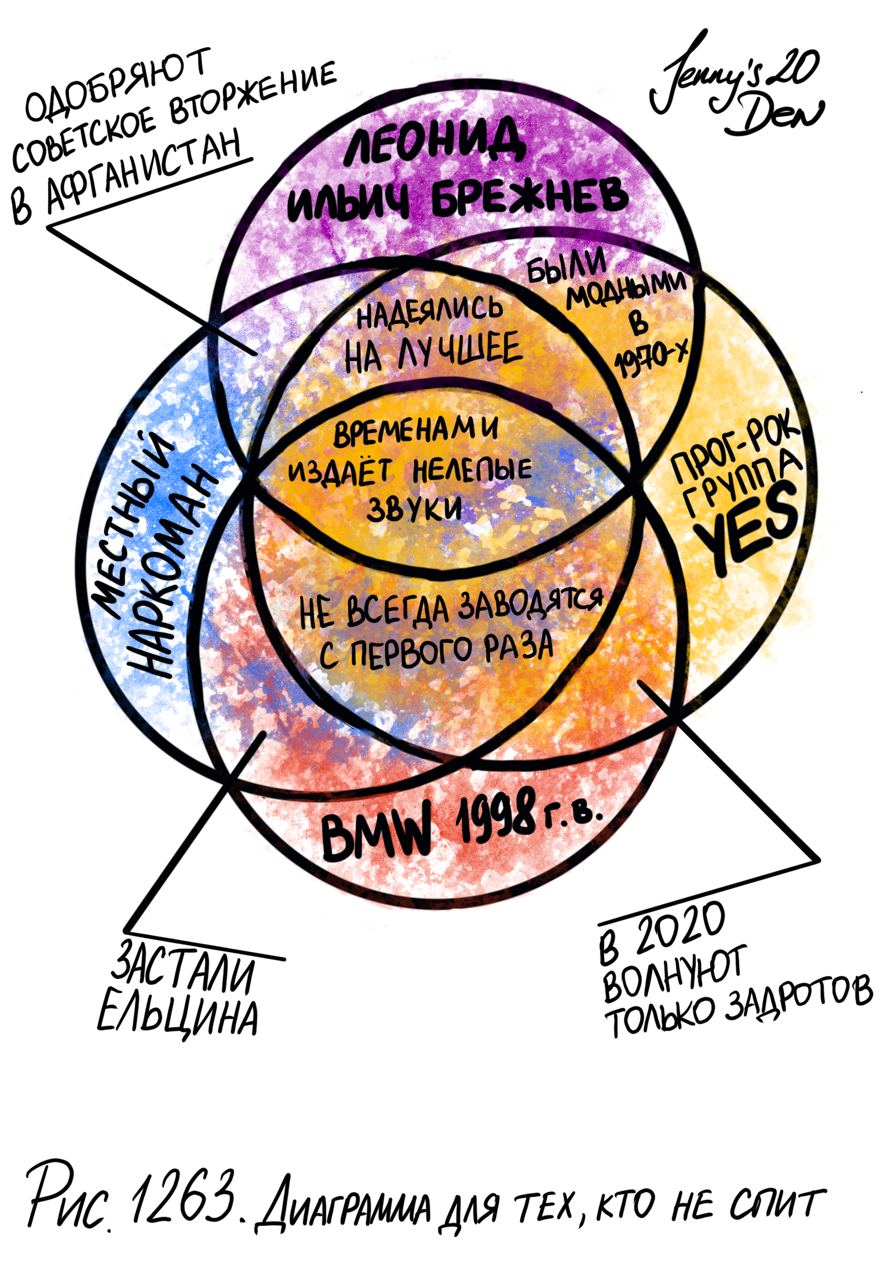 Jenny's 20
Den
ОДОБРЯЮТ
СОВЕТСКОЕ ВТОРЖЕНИЕ
В АФГАНИСТАН
ЛЕОНИД
ИЛЬИЧ БРЕЖНЕВ
БЫЛИ
МОДНЫМИ
В
1970-Х
НАДЕЯЛИСЬ
НА ЛУЧШЕЕ
ВРЕМЕНАМИ
ИЗДАЁТ НЕЛЕПЫЕ
ЗВУКИ
ПРОГ-РОК
ГРУППА
YES
МЕСТНЫЙ
НАРКОМАН
НЕ ВСЕГДА ЗАВОДЯТСЯ
С ПЕРВОГО РАЗА
BMW 1998 г. в.
ЗАСТАЛИ
ЕЛЬЦИНА
В 2020
ВОЛНУЮТ
ТОЛЬКО ЗАДРОТОВ
Рис. 1263. Диаграмма для тех, кто не спит